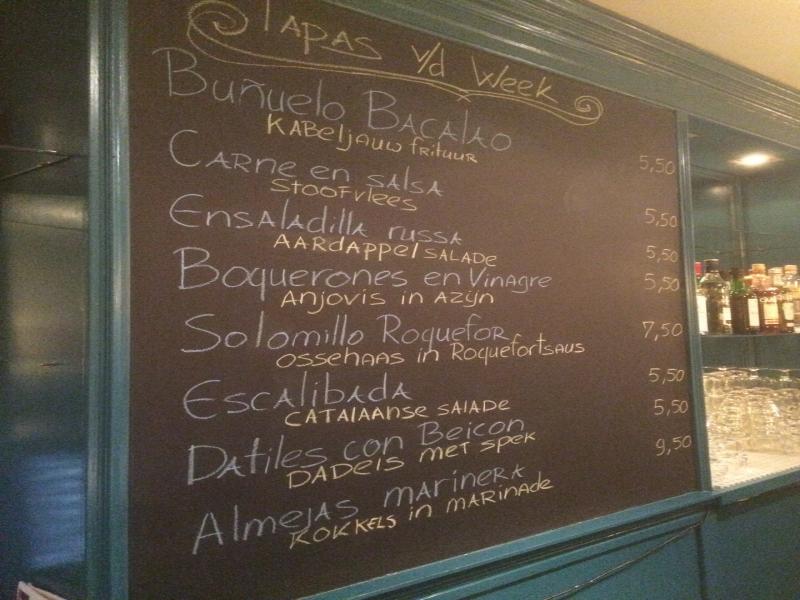 Tapas v/d Week
Buñuelo Bacalao
Kabeljauw frituur 5,50
Carne en salsa
Stoofvlees 5,50
Ensaladilla russa
Aardappelsalade 5,50
Boquerones en Vinagre 5,50
Anjovis in Azijn
Solomillo Roquefor 7,50
Ossehaas in Roquefortsaus
Escalibada 5,50
Catalaanse salade
Datiles con Beicon 5,50
Dadels met spek
Almejas marinera 9,50
Kokkels in marinade